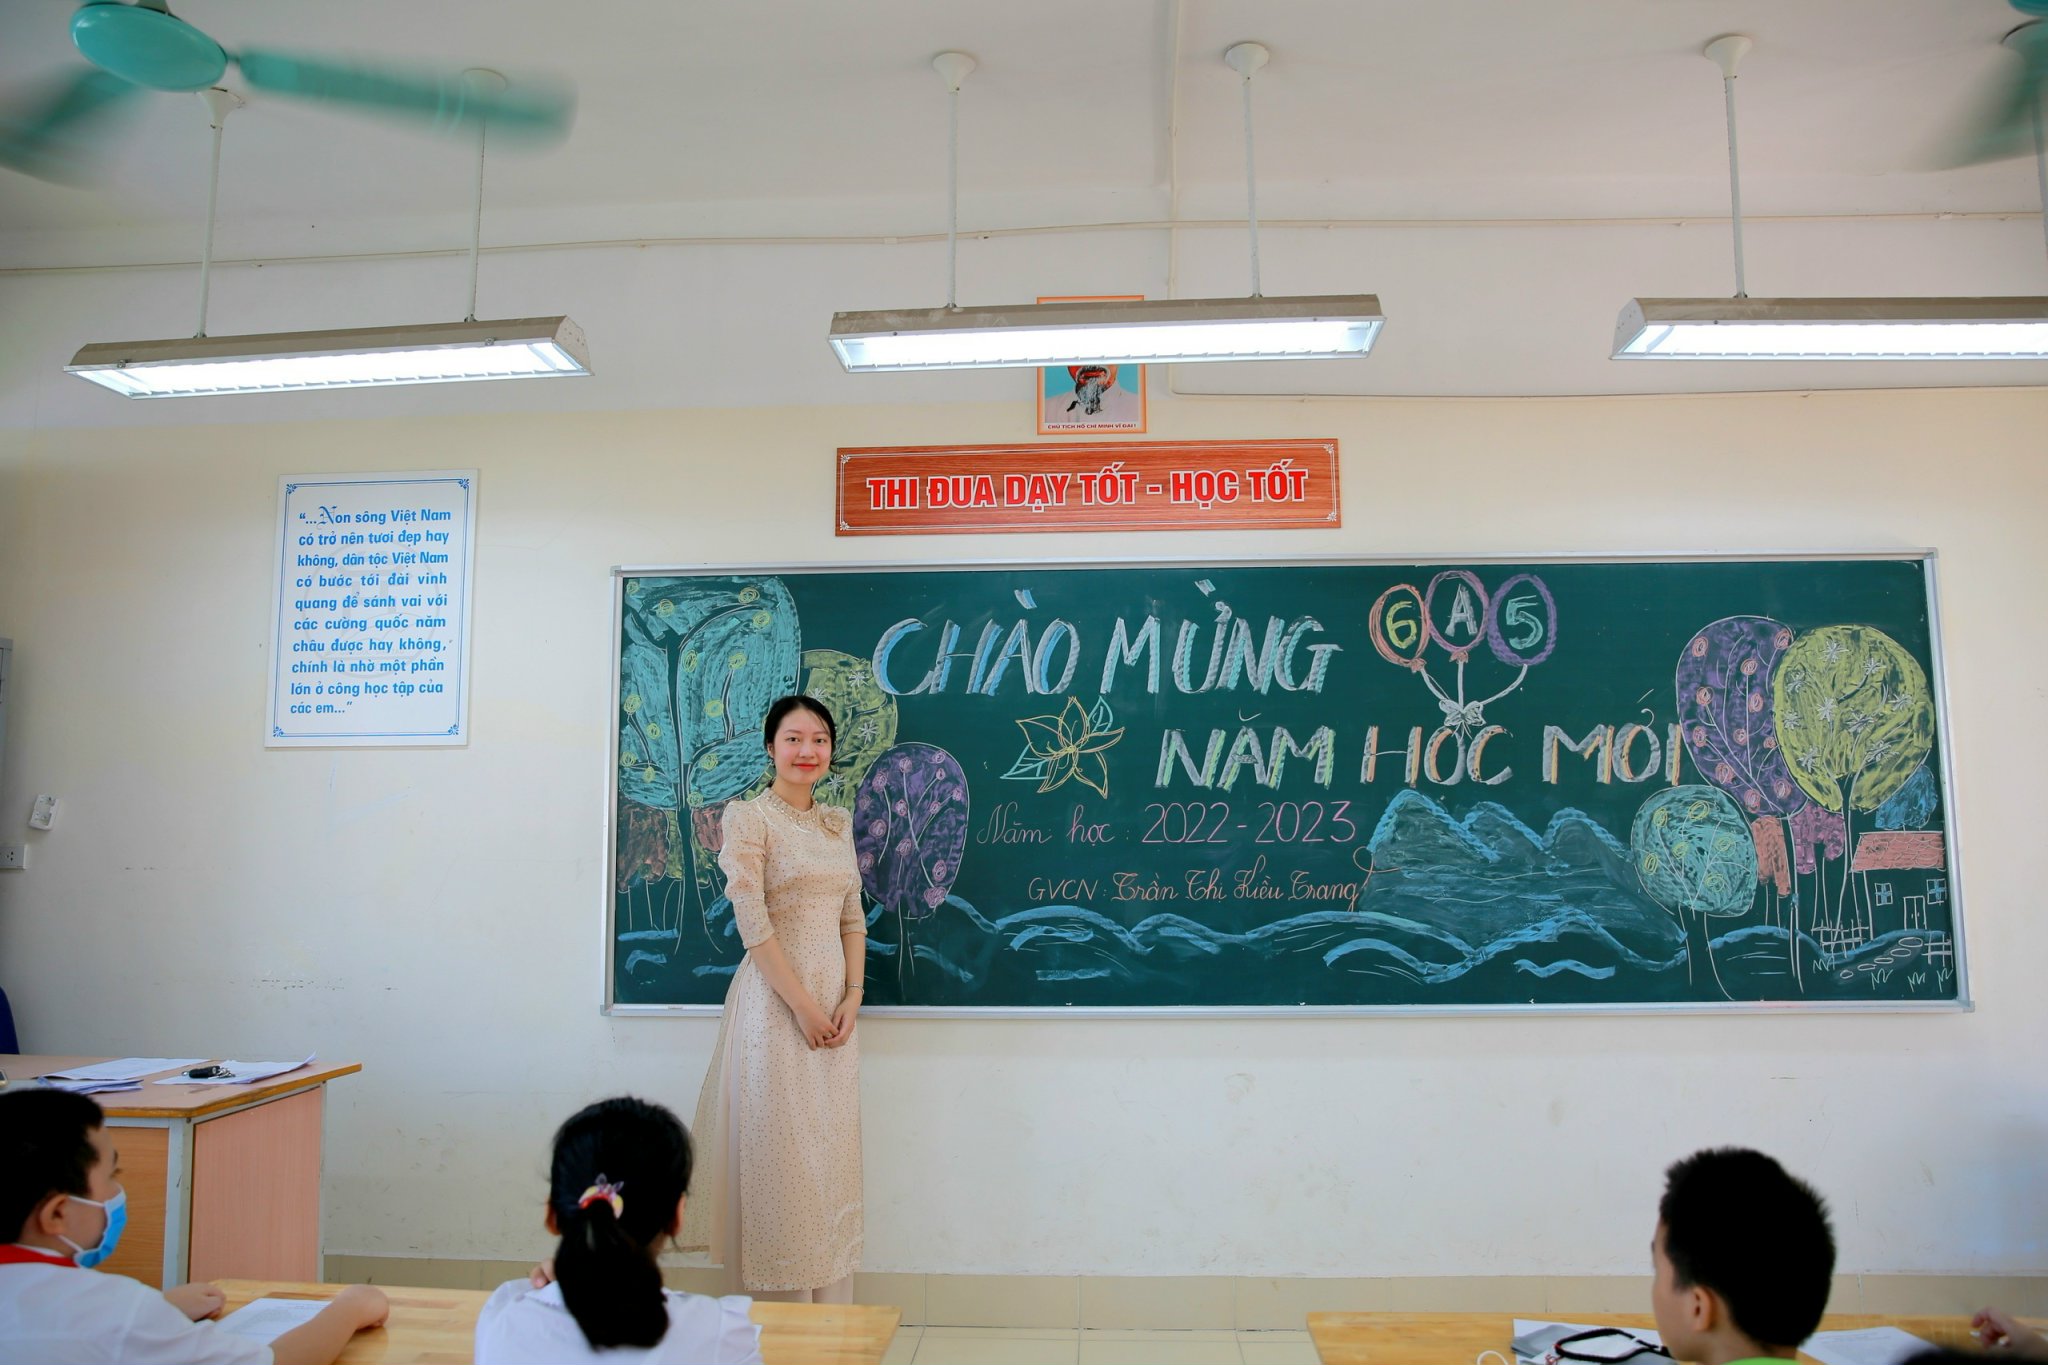 CHỦ TỊCH HỒ CHÍ MINH VĨ ĐẠI!
THI ĐUA DẠY TỐT - HỌC TỐT
"...Non sông Việt Nam
có trở nên tươi đẹp hay
không, dân tộc Việt Nam
có bước tới đài vinh
quang để sánh vai với
các cường quốc năm
châu được hay không,
chính là nhờ một phần
lớn ở công học tập của
các em..."
CHÀO MỪNG
6A5
NĂM HỌC MỚI
Năm học: 2022-2023
GVCN: Trần Thị Kiều Trang